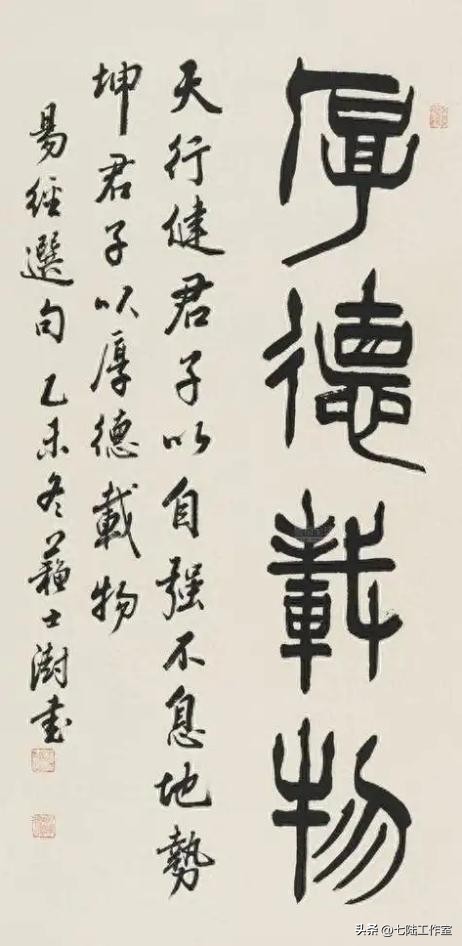 厚德載物
天行健君子以自强不息地勢
坤君子以厚德載物
易經選句乙未冬蘇士澍書
头条@七陆工作室